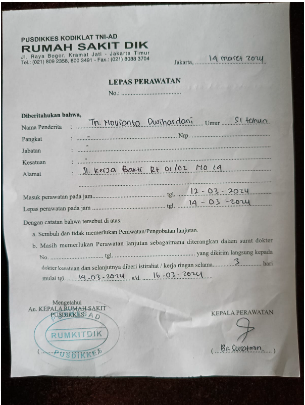 PUSDIKKES KODIKLAT TNI-AD
RUMAH SAKIT DIK
Jl. Raya Bogor, Kramat Jati - Jakarta Timur
Jakarta, 14 maret 2024
LEPAS PERAWATAN
No.:
Diberitahukan bahwa,
Nama Penderita : Tn. Umur 51 tahun
Pangkat : - Nrp
Jabatan : -
Kesatuan : -
Alamat : Jl. Kerja Bakti Rt 01/02 No 19
Masuk perawatan pada jam tgl. 12-03-2024
Lepas perawatan pada jam tgl. 14-03-2024
Dengan catatan bahwa tersebut di atas
a. Sembuh dan tidak memerlukan Perawatan/Pengobatan lanjutan.
b. Masih memerlukan Perawatan lanjutan sebagaimana diterangkan dalam surat dokter
No. tgl. yang dikirim langsung kepada
dokter kesatuan dan selanjutnya diberi istirahat / kerja ringan selama 3 hari
mulai tgl 14-03-2024 s.d. 16-03-2024
Mengetahui
An. KEPALA RUMAH SAKIT
PUSDIKKES
KEPALA PERAWATAN
RUMKITDIK
PUSDIKKES